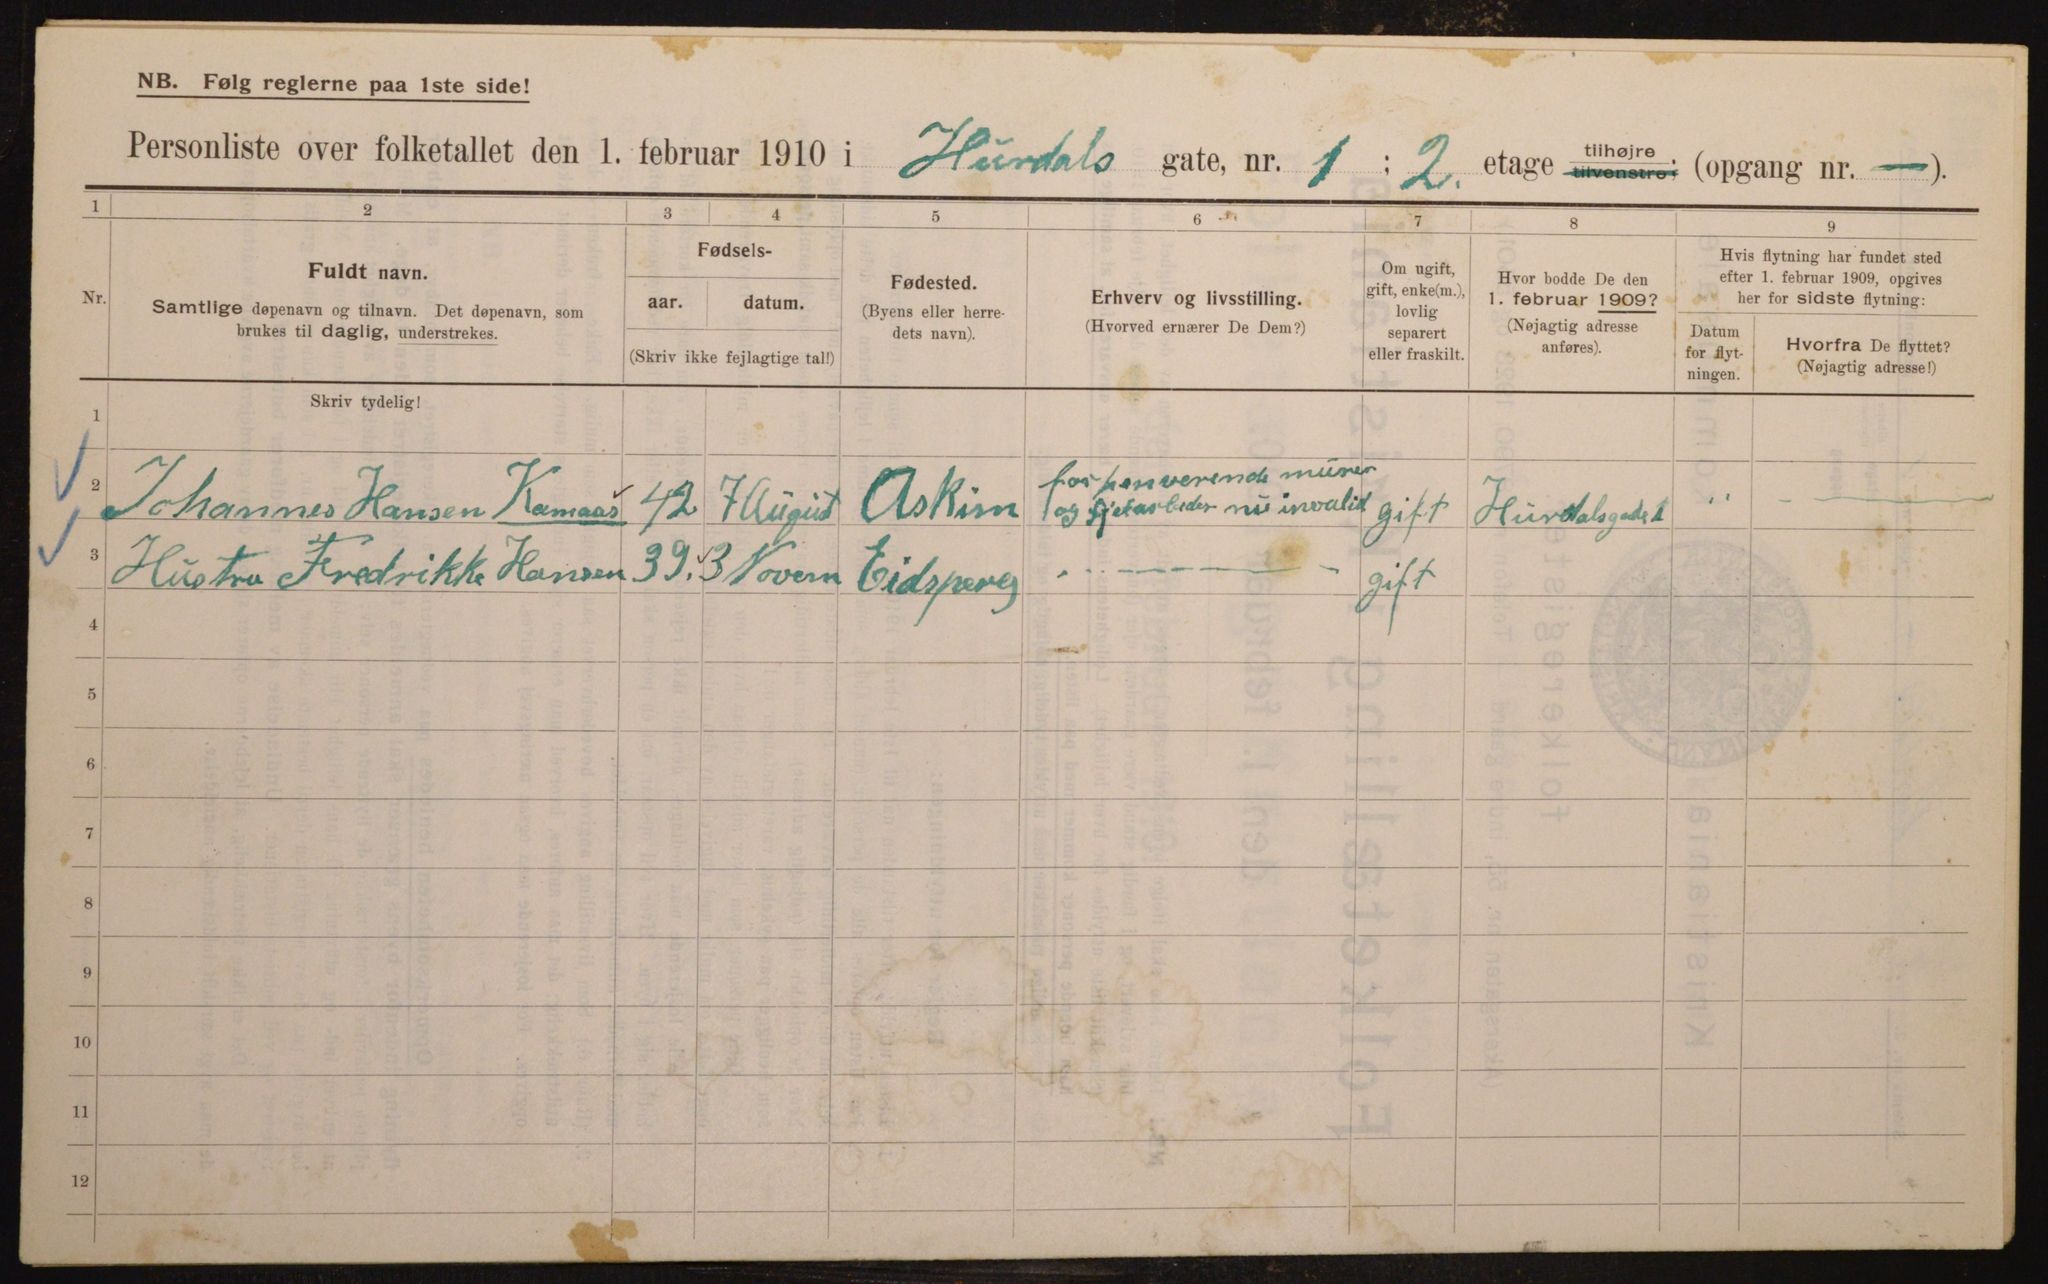 NB. Følg reglerne paa 1ste side!
Personliste over folketallet den 1. februar 1910 i Hurdals gate, nr. 1 ; 2. etage tilhøjre tilvenstre; (opgang nr. — ).
1 2 3 4 5 6 7 8 9
Nr.
Fuldt navn.
Samtlige døpenavn og tilnavn. Det døpenavn, som
brukes til daglig, understrekes.
Fødsels-
aar. datum.
(Skriv ikke fejlagtige tal!)
Fødested.
(Byens eller herre-
dets navn).
Erhverv og livsstilling.
(Hvorved ernærer De Dem?)
Om ugift,
gift, enke(m.),
lovlig
separert
eller fraskilt.
Hvor bodde De den
1. februar 1909?
(Nøjagtig adresse
anføres).
Hvis flytning har fundet sted
efter 1. februar 1909, opgives
her for sidste flytning:
Datum
for flyt-
ningen.
Hvorfra De flyttet?
(Nøjagtig adresse!)
Skriv tydelig!
1
2 Johannes Hansen Kamaas 42 7 August Askim forhenverende murer
og nu invalid gift Hurdalsgade 1 "
3 Hustru Fredrikke Hansen 39. 3 Novem Eidsperg gift
4
5
6
7
8
9
10
11
12